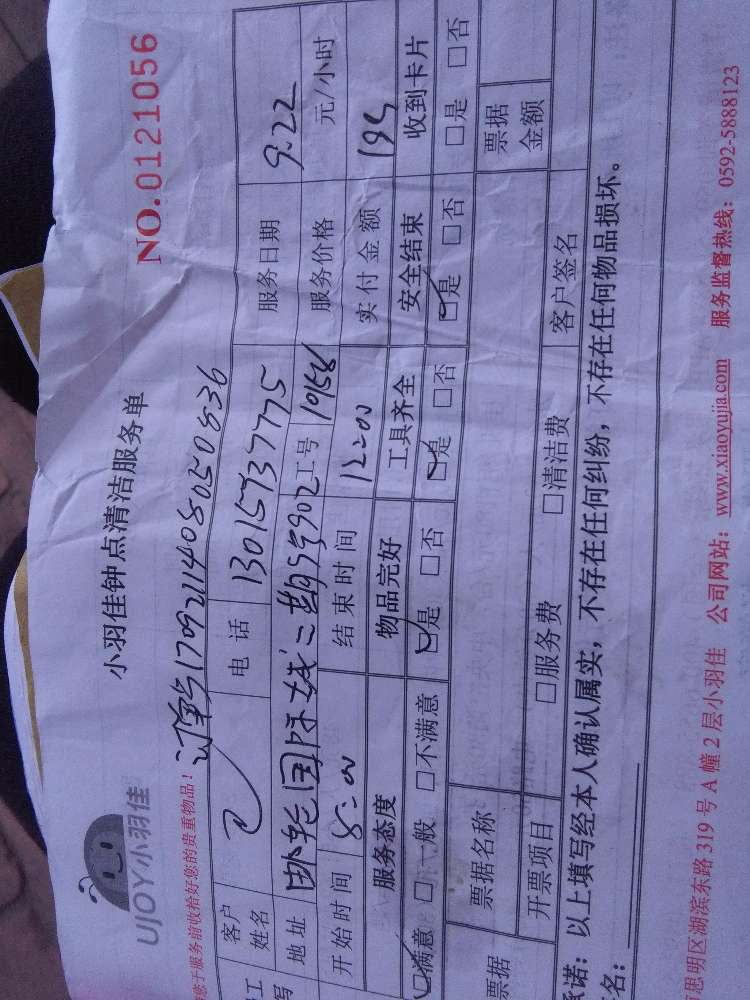 UJOY小羽佳
小羽佳钟点清洁服务单
NO.0121056
您于服务前收拾好您的贵重物品!
订单号1709211408050836
客户姓名 电话 13015737775 服务日期 9.22
地址 国际城二期 902 工号 10158 服务价格 元/小时
开始时间 8:00 结束时间 12:00 实付金额 195
服务态度 物品完好 工具齐全 安全结束 收到卡片
☑满意 □一般 □不满意 ☑是 □否 ☑是 □否 ☑是 □否 □是 □否
票据 票据名称 票据金额
开票项目 □服务费 □清洁费 客户签名
承诺:以上填写经本人确认属实,不存在任何纠纷,不存在任何物品损坏。
名:
思明区湖滨东路319号A幢2层小羽佳 公司网站:www.xiaoyujia.com 服务监督热线:0592-5888123